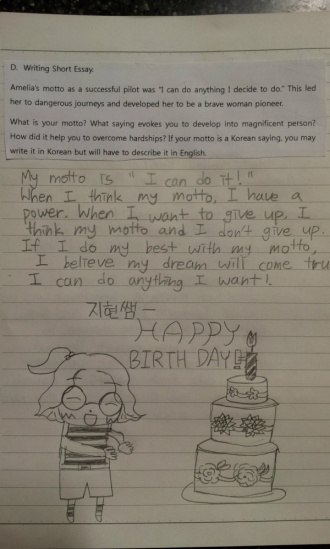 D. Writing Short Essay.
Amelia's motto as a successful pilot was "I can do anything I decide to do." This led
her to dangerous journeys and developed her to be a brave woman pioneer.
What is your motto? What saying evokes you to develop into magnificent person?
How did it help you to overcome hardships? If your motto is a Korean saying, you may
write it in Korean but will have to describe it in English.
My motto is " I can do it!"
When I think my motto, I have a
power. When I want to give up, I
think my motto and I don't give up.
If I do my best with my motto,
I believe my dream will come tru
I can do anything I want!.
지현쌤 —
HAPPY
BIRTH DAY